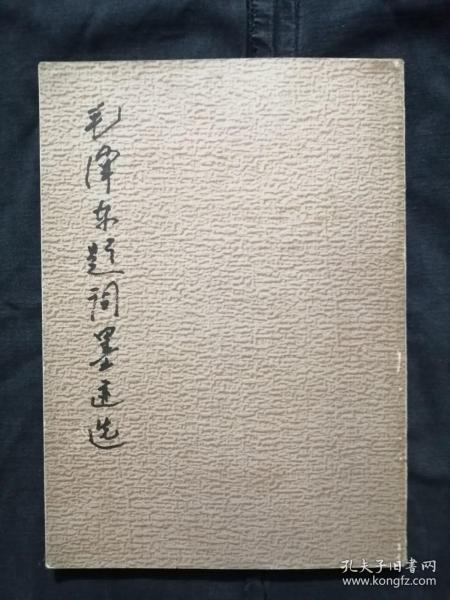 毛泽东题词墨迹选
孔夫子旧书网
www.kongfz.com